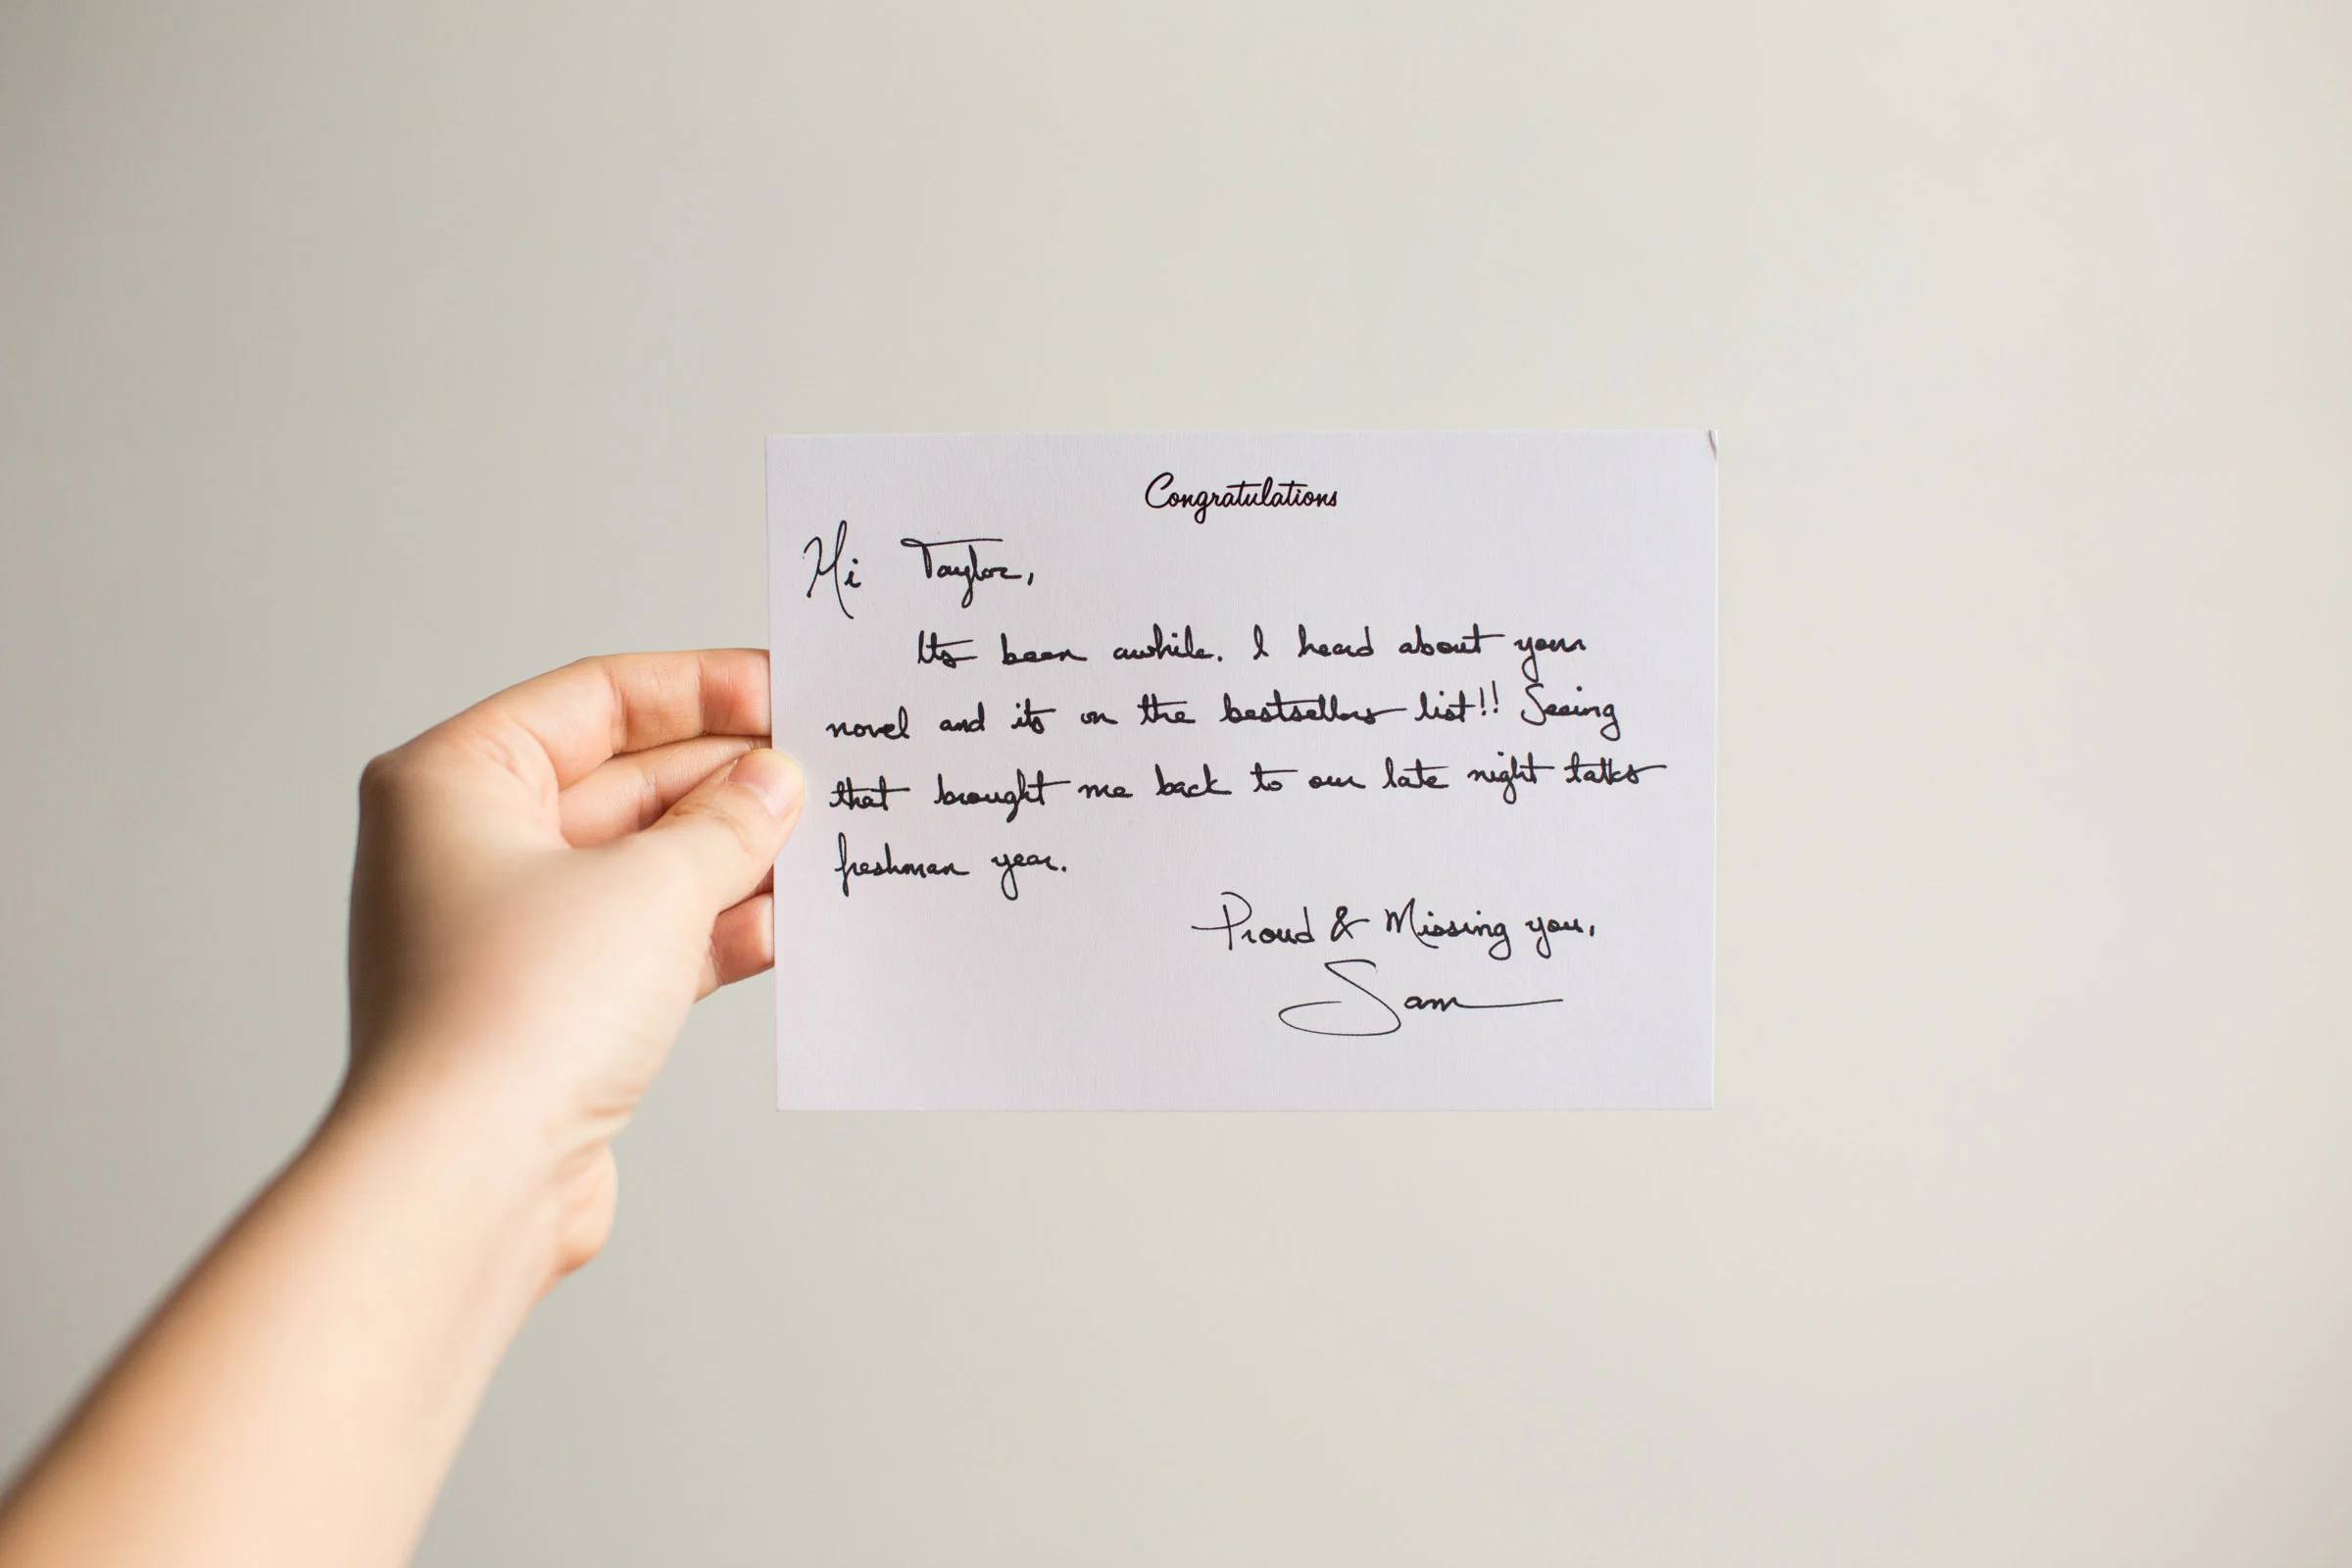 Congratulations
Hi Taylor,
Its been awhile. I heard about your
novel and its on the bestsellers list!! Seeing
that brought me back to our late night talks
freshman year.
Proud & Missing you,
Sam